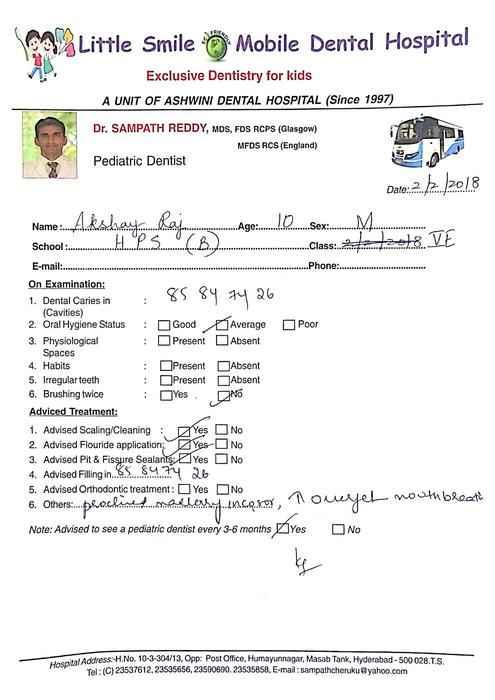 Little Smile ECO FRIENDLY Mobile Dental Hospital
Exclusive Dentistry for kids
A UNIT OF ASHWINI DENTAL HOSPITAL (Since 1997)
Dr. SAMPATH REDDY, MDS, FDS RCPS (Glasgow)
MFDS RCS (England)
Pediatric Dentist
Date: 2/2/2018
Name: Akshay Raj Age: 10 Sex: M
School: HPS (B) Class: 2/2/2018 VE
E-mail: Phone:
On Examination:
1. Dental Caries in : 85 84 74 26
(Cavities)
2. Oral Hygiene Status : Good Average Poor
3. Physiological : Present Absent
Spaces
4. Habits : Present Absent
5. Irregular teeth : Present Absent
6. Brushing twice : Yes No
Adviced Treatment:
1. Advised Scaling/Cleaning : Yes No
2. Advised Flouride application: Yes No
3. Advised Pit & Fissure Sealants: Yes No
4. Advised Filling in 85 84 74 26
5. Advised Orthodontic treatment : Yes No
6. Others: proclined
Note: Advised to see a pediatric dentist every 3-6 months Yes No
Hospital Address:-H.No. 10-3-304/13, Opp: Post Office, Humayunnagar, Masab Tank, Hyderabad - 500 028.T.S.
Tel : (C) 23537612, 23535656, 23590690. 23535858, E-mail : sampathcheruku@yahoo.com